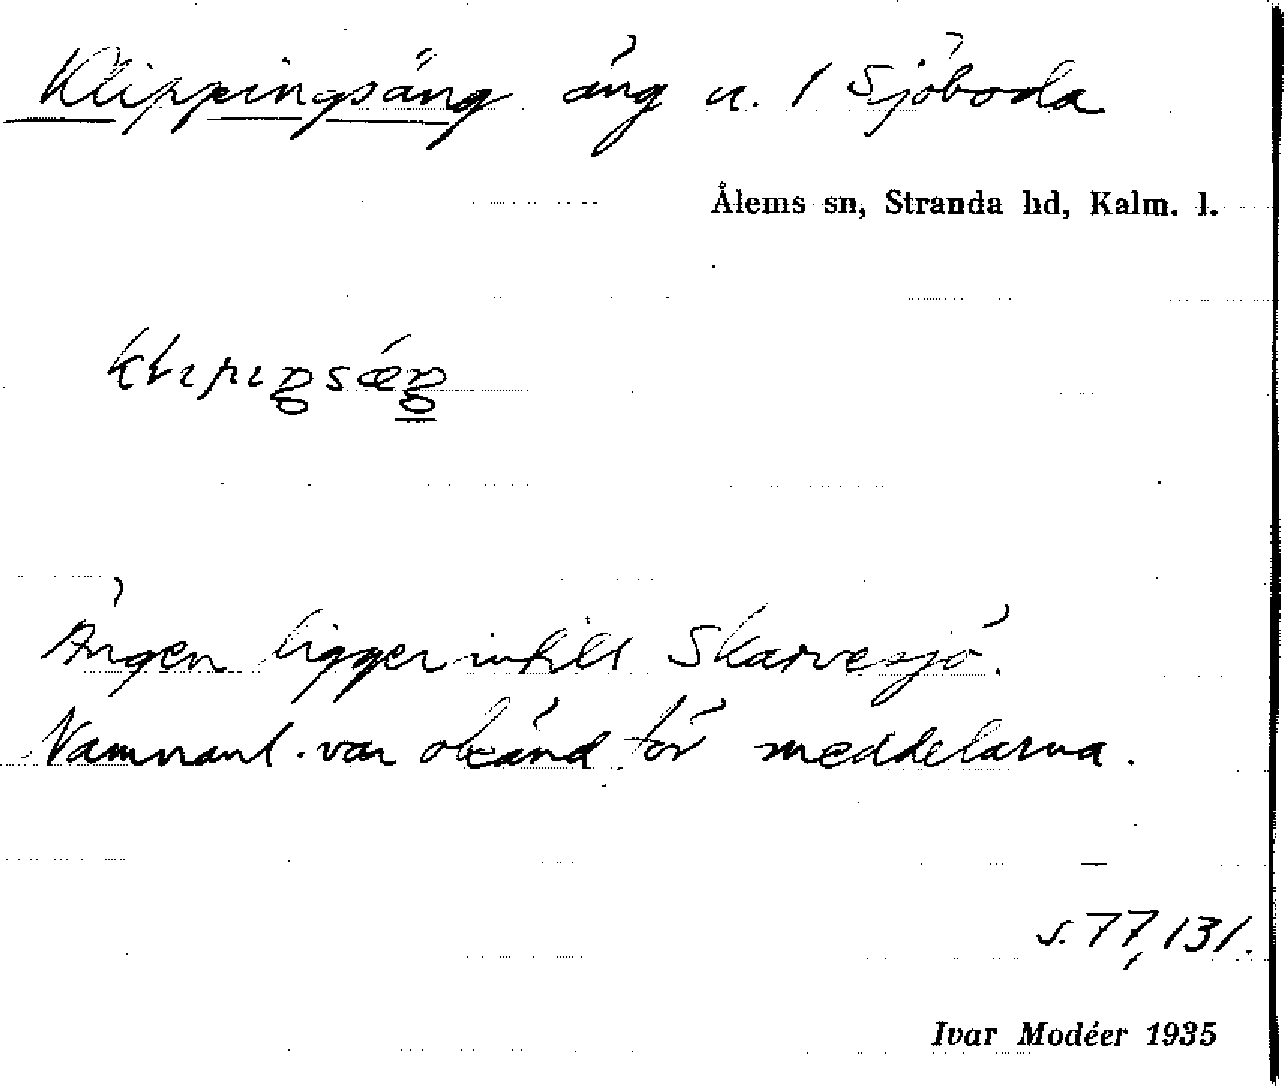 Klippingsäng äng u. 1 Sjöboda
Ålems sn, Stranda hd, Kalm. l.
Ängen ligger intill Skarvesjö.
Namnanl. var okänd för meddelarna.
s. 77, 131.
Ivar Modéer 1935